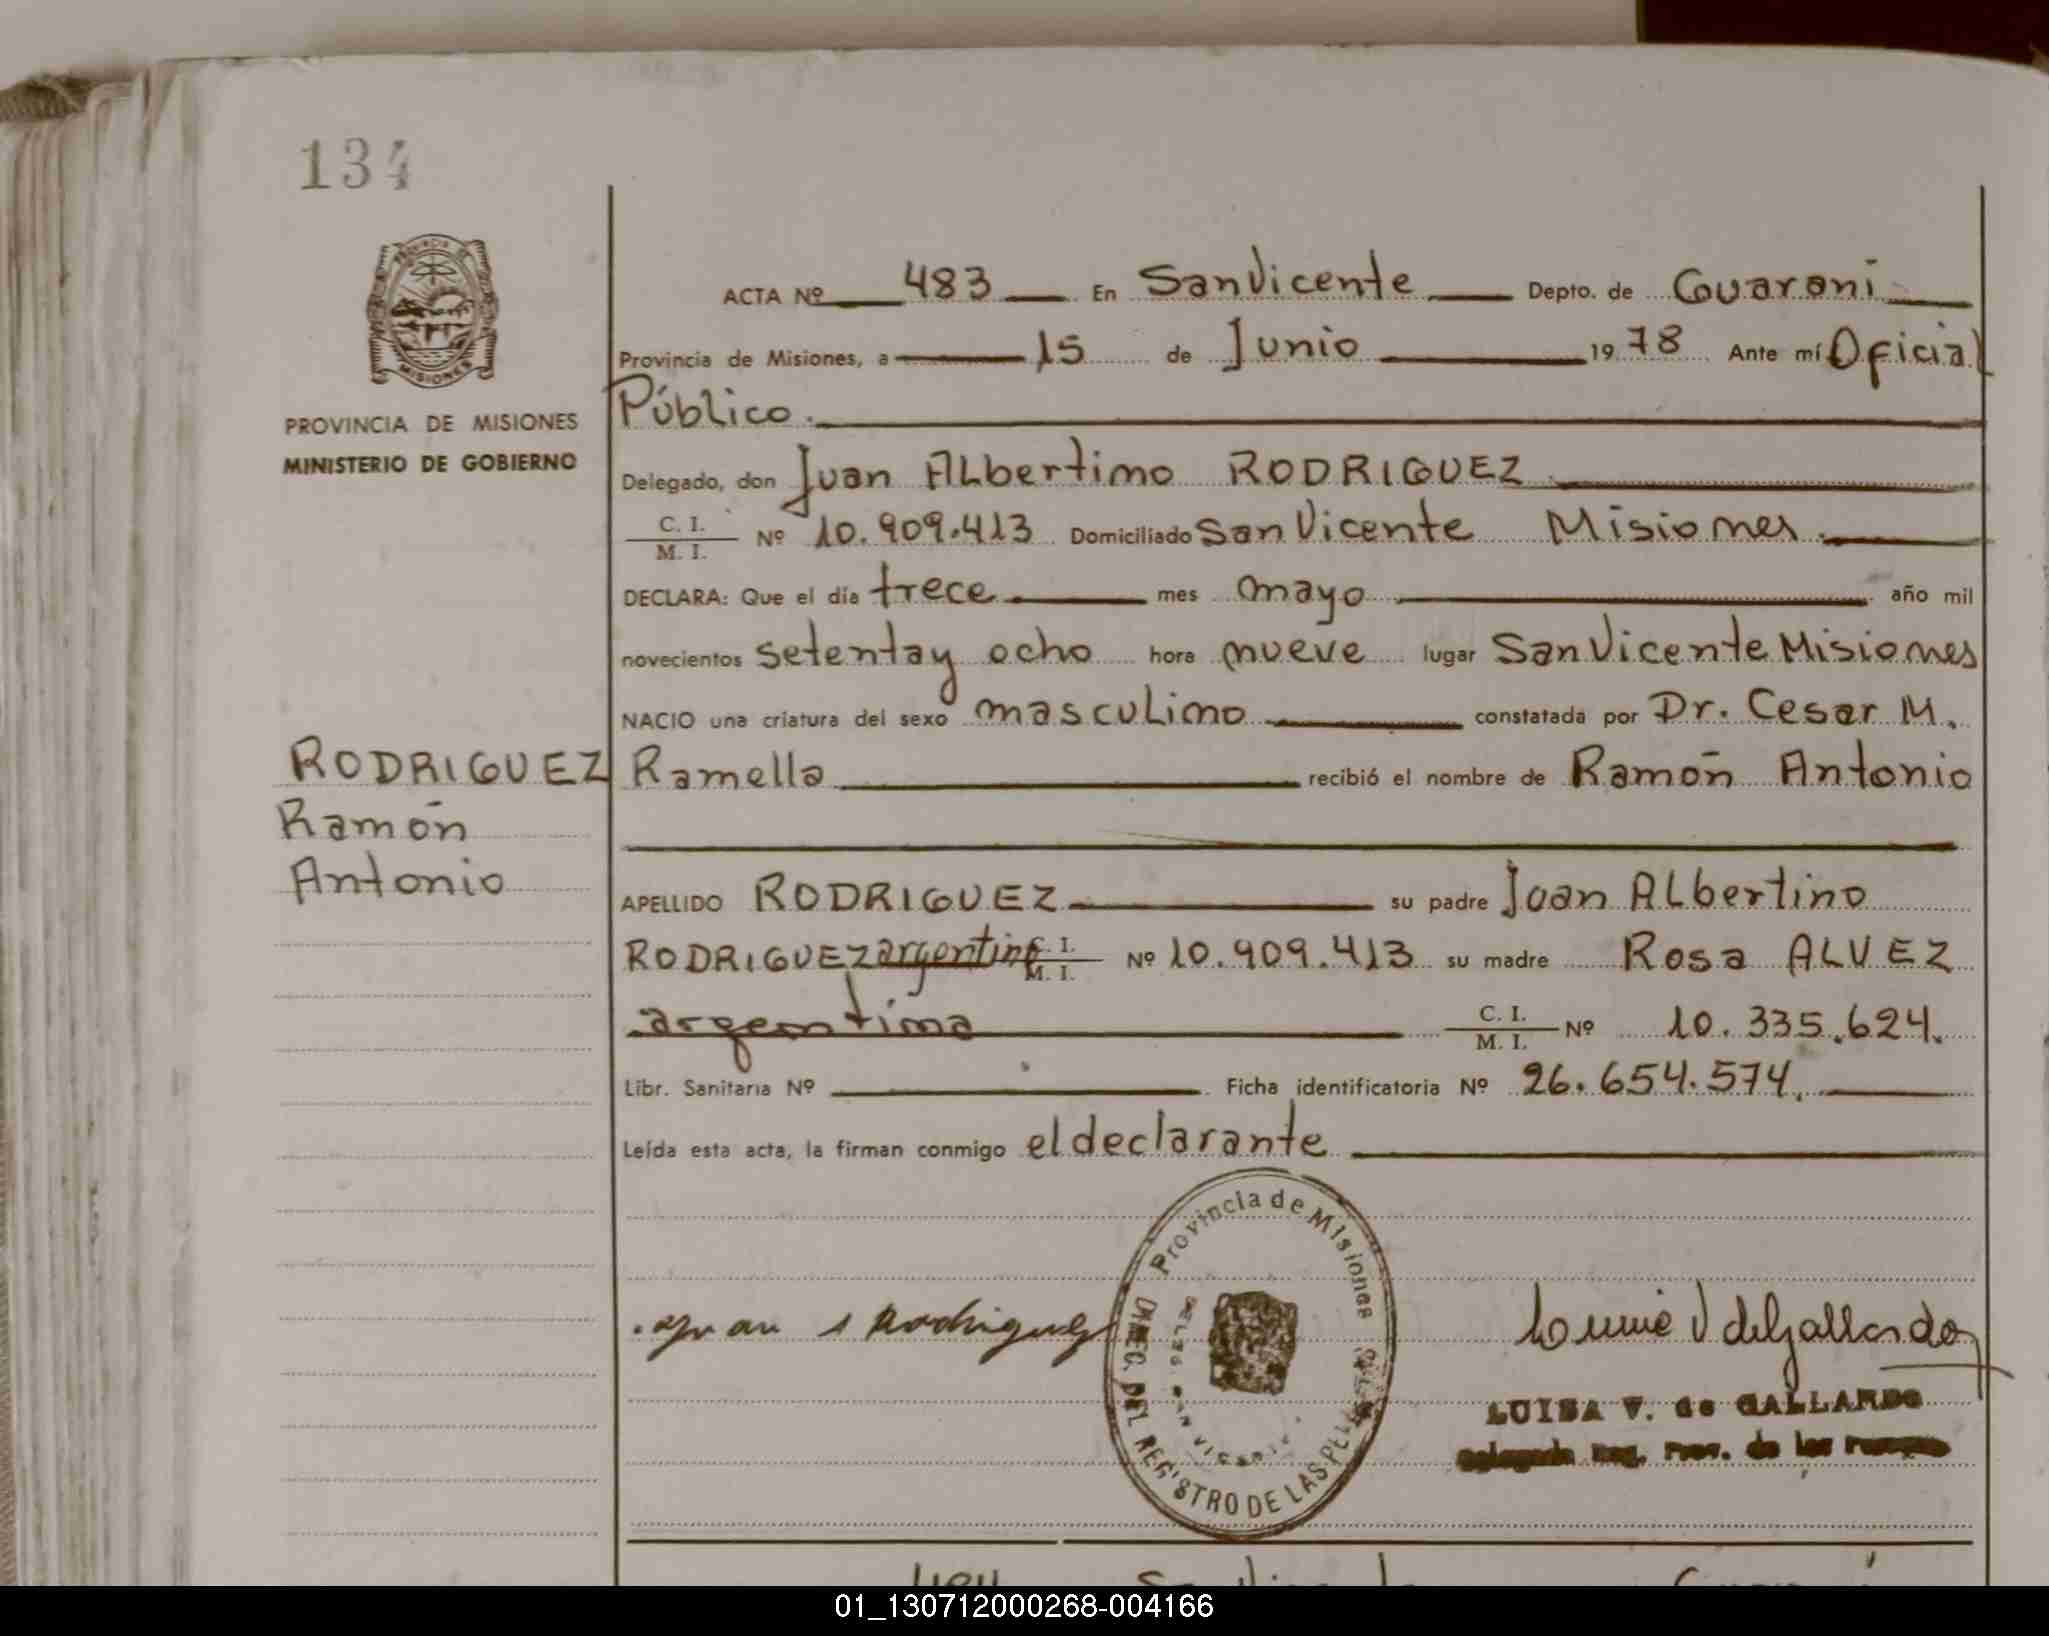 134
ACTA Nº 483 En San Vicente Depto. de Guarani
Provincia de Misiones, a 15 de Junio 1978 Ante mí Oficial
Público.
PROVINCIA DE MISIONES
MINISTERIO DE GOBIERNO
Delegado, don Juan Albertino RODRIGUEZ
C. I.
M. I. Nº 10.909.413 Domiciliado San Vicente Misiones.
DECLARA: Que el día trece mes mayo año mil
novecientos setenta y ocho hora nueve lugar San Vicente Misiones
NACIO una criatura del sexo masculino constatada por Dr. Cesar M.
RODRIGUEZ Ramella recibió el nombre de Ramón Antonio
Ramón
Antonio
APELLIDO RODRIGUEZ su padre Juan Albertino
RODRIGUEZ argentino C. I. M. I. Nº 10.909.413 su madre Rosa ALVEZ
argentina C. I. M. I. Nº 10.335.624.
Libr. Sanitaria Nº Ficha identificatoria Nº 26.654.574.
Leída esta acta, la firman conmigo el declarante
Provincia de Misiones
DIREC. DEL REGISTRO DE LAS
SAN VICENTE
Juan A Rodriguez
Luisa V de Gallardo
LUISA V. de GALLARDO
Delegada Reg. Prov. de las
01_130712000268-004166